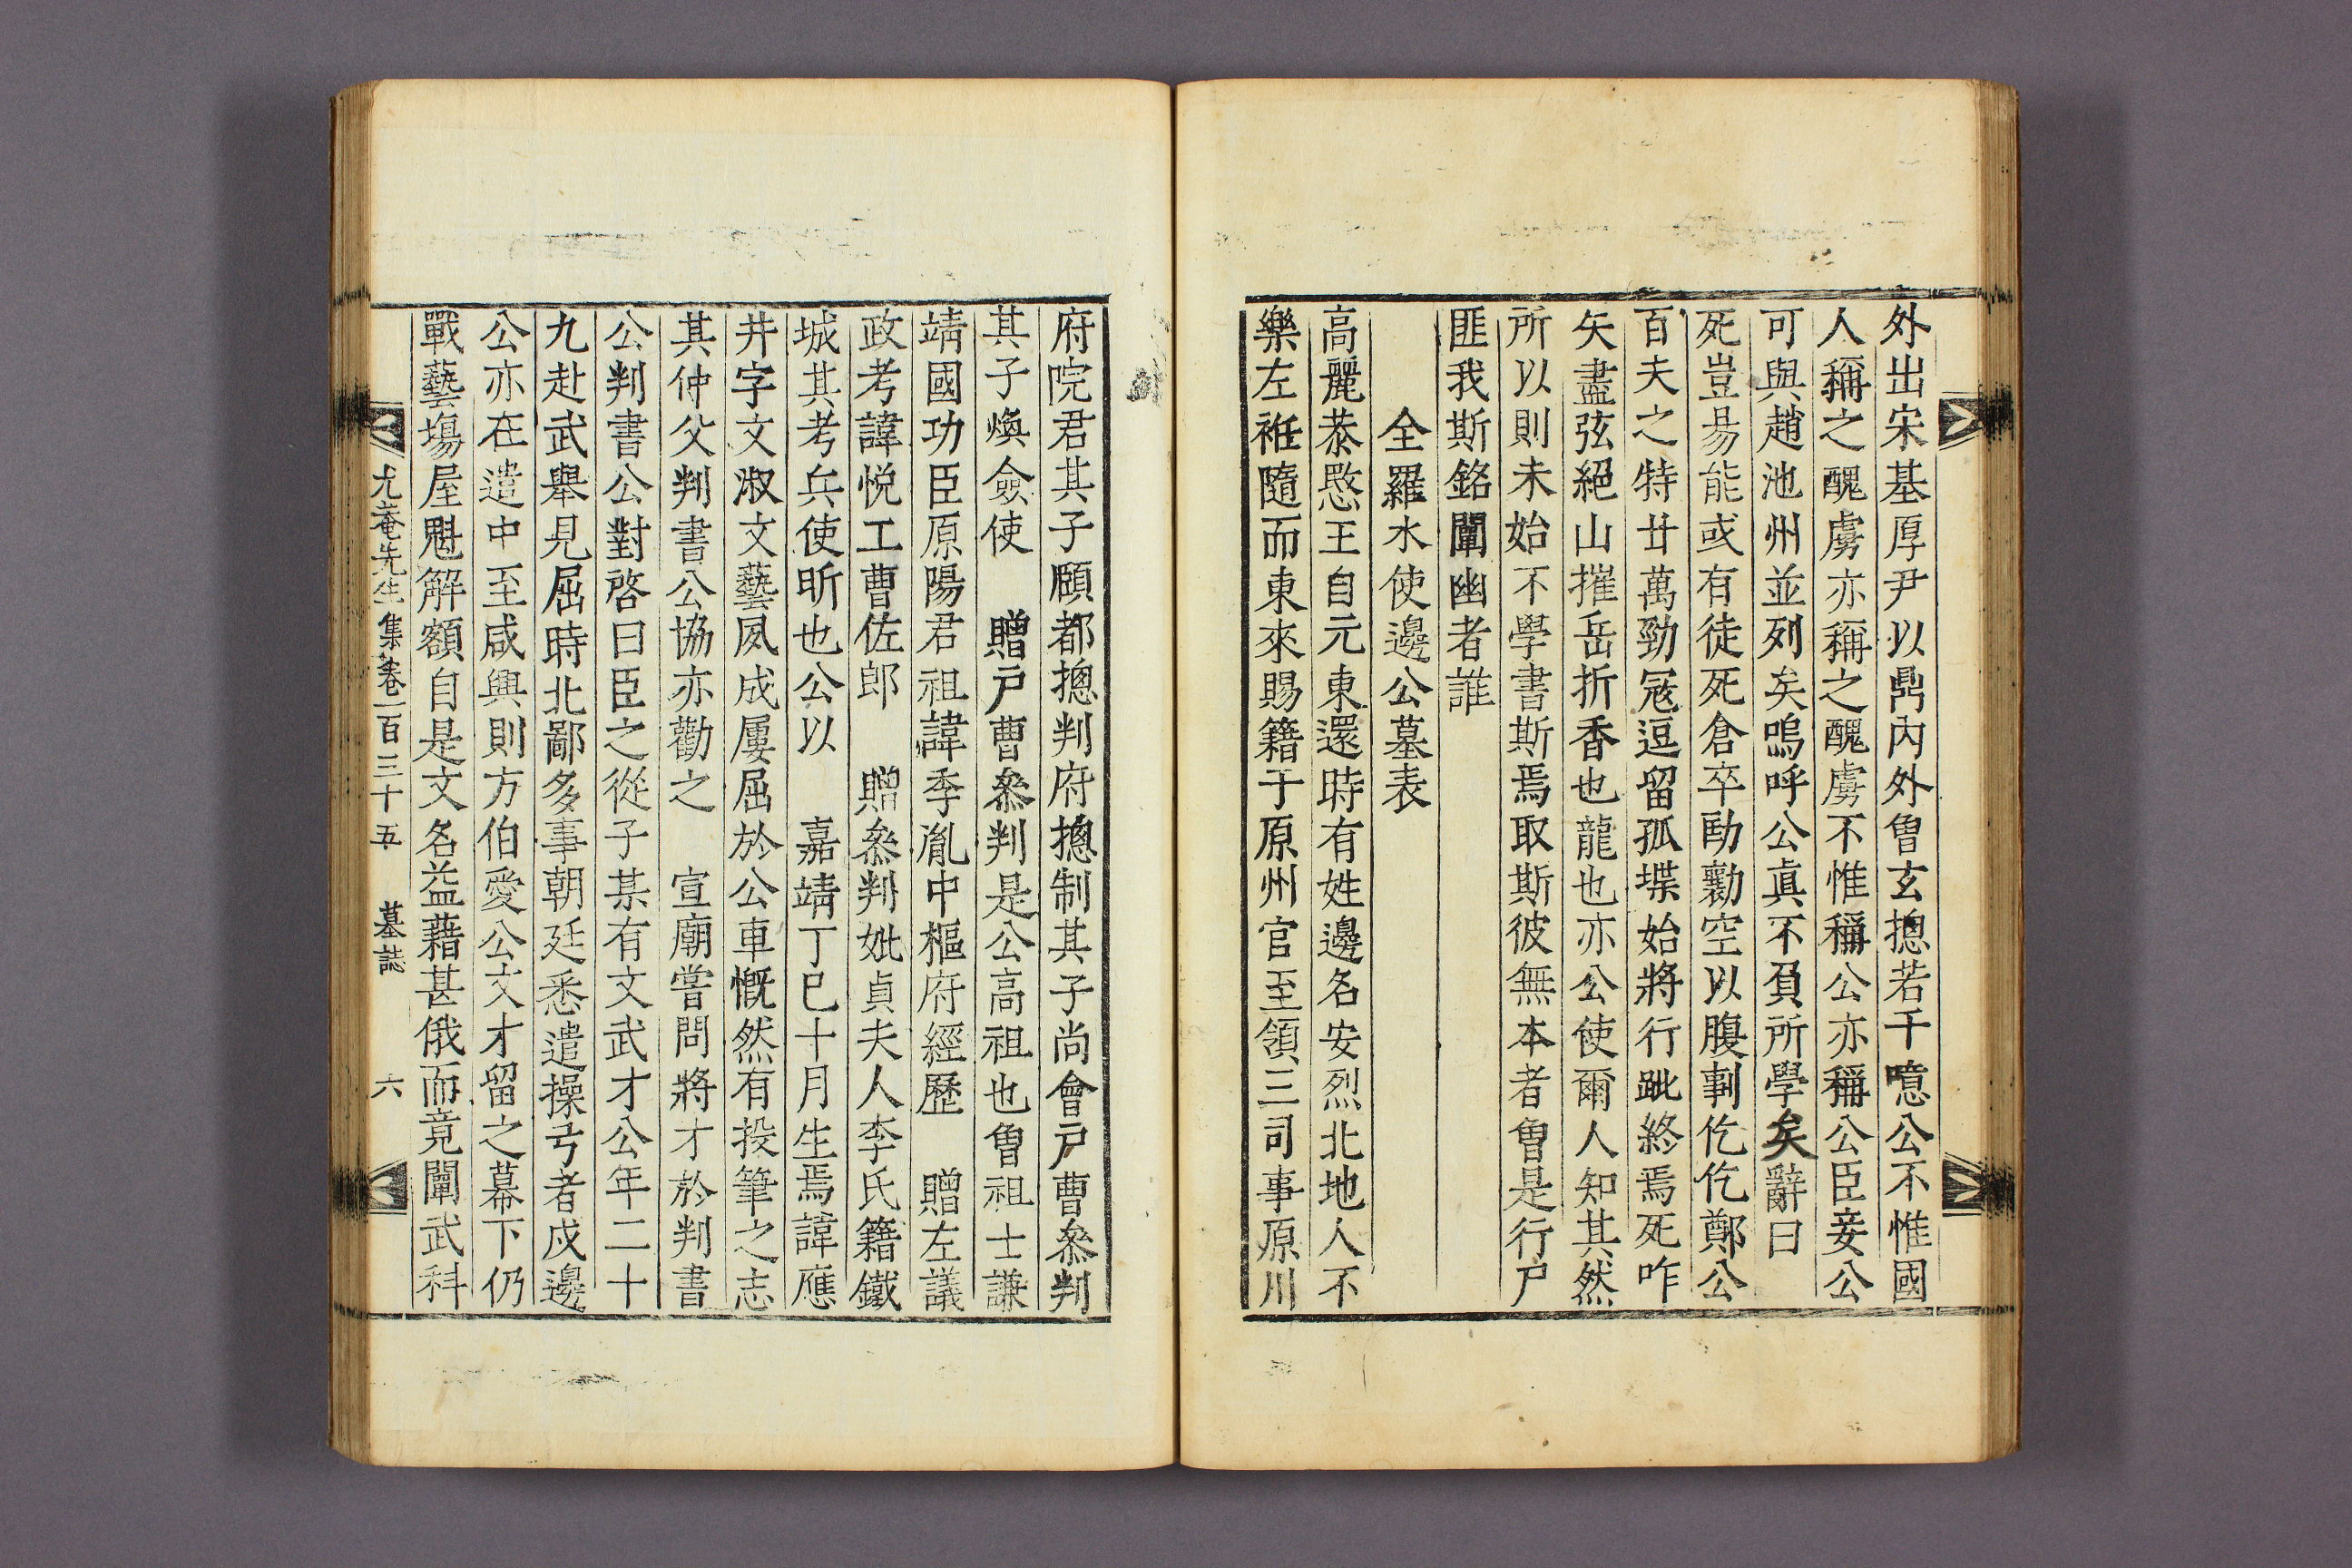 外出宋基厚尹以鼎內外曾玄摠若千噫公不惟國
人稱之醜虜亦稱之醜虜不惟稱公亦稱公臣妾公
可與趙池州並列矣嗚呼公眞不負所學矣辭曰
死豈易能或有徒死倉卒劻勷空以腹剚仡仡鄭公
百夫之特廿萬勁寇逗留孤堞始將行跐終焉死咋
矢盡弦絕山摧岳折香也龍也亦公使爾人知其然
所以則未始不學書斯焉取斯彼無本者曾是行尸
匪我斯銘闡幽者誰
全羅水使邊公墓表
高麗恭愍王自元東還時有姓邊名安烈北地人不
樂左袵隨而東來賜籍于原州官至領三司事原川
府院君其子頤都摠判府摠制其子尚會戶曹叅判
其子煥僉使 贈戶曹叅判是公高祖也曾祖士謙
靖國功臣原陽君祖諱季胤中樞府經歷 贈左議
政考諱悅工曹佐郎 贈叅判妣貞夫人李氏籍鐵
城其考兵使昕也公以 嘉靖丁巳十月生焉諱應
井字文淑文藝夙成屢屈於公車慨然有投筆之志
其仲父判書公協亦勸之 宣廟嘗問將才於判書
公判書公對啓曰臣之從子某有文武才公年二十
九赴武擧見屈時北鄙多事朝廷悉遣操弓者戍邊
公亦在遣中至咸興則方伯愛公文才留之幕下仍
戰藝場屋魁解額自是文名益藉甚俄而竟闡武科
尤菴先生集卷一百三十五 墓誌 六